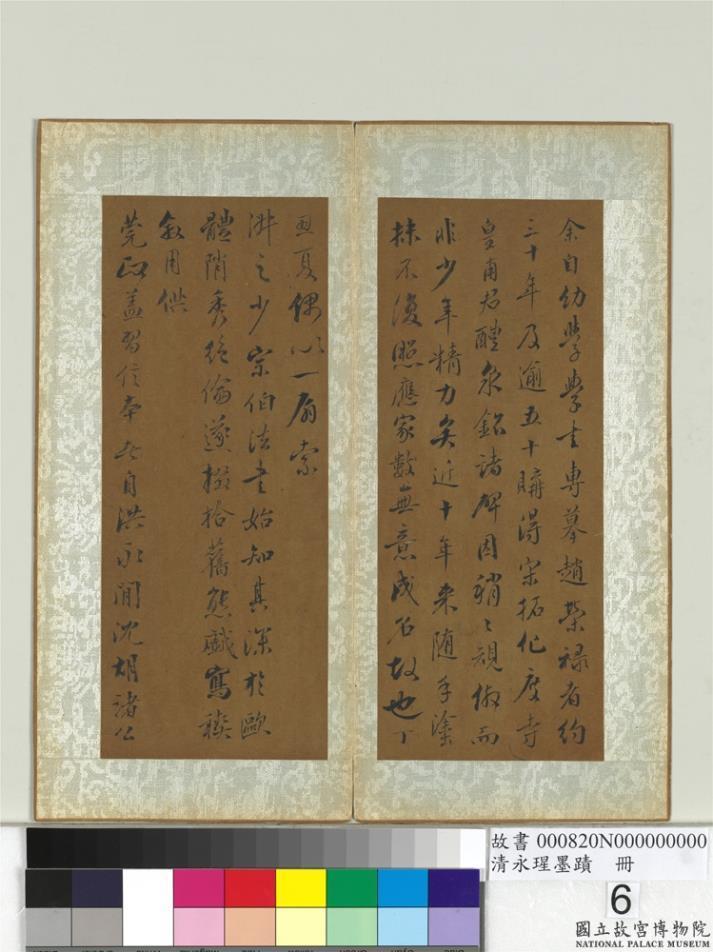 余自幼學學士專摹趙榮祿者約
三十年及逾五十購得宋拓化度寺
皇甫君醴泉銘諸碑因稍〻規倣而
非少年精力矣近十年来随手塗
抹不復照應家數無意成名故也丁
丑夏偶以一扇索
沖之少宗伯法書始知其深於歐
體陗秀絶倫遂掇拾舊態戲寫
敘用供
莞政蓋習信本者自洪永間沈胡諸公
故書 000820N000000000
清永瑆墨蹟 冊
6
國立故宮博物院
NATIONAL PALACE MUSEUM